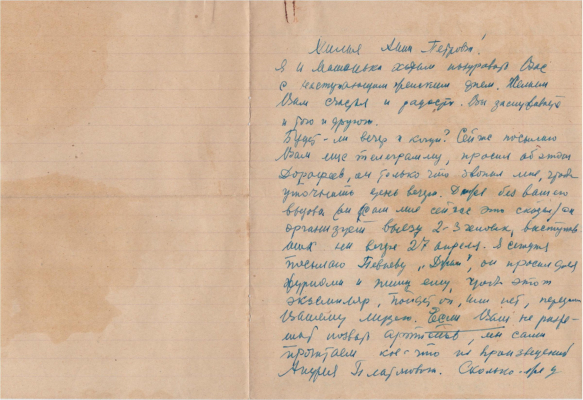 Милая Анна Петровна!
Я и Машенька хотим поздравить Вас
с наступающим женским днем. Желаем
Вам счастья и радости. Вы заслуживаете
и того и другого.
Будет-ли вечер и когда? Сейчас посылаю
Вам еще телеграмму, просил об этом
Дорофеев, он только что звонил мне, чтоб
уточнить день вечера. Даже без вашего
вызова он мне сейчас это сказал он
организует выезд 2-3 человек, выступив
ших на вечере 27 апреля. Я сегодня
посылаю Певзеву „Джан", он просил для
журнала и пишу ему, чтоб этот
экземпляр, пойдет он, или нет, передал
Вашему музею. Если Вам не разре-
шат позвать артистов, мы сами
прочитаем кое-что из произведений
Андрея Платонова. Сколько